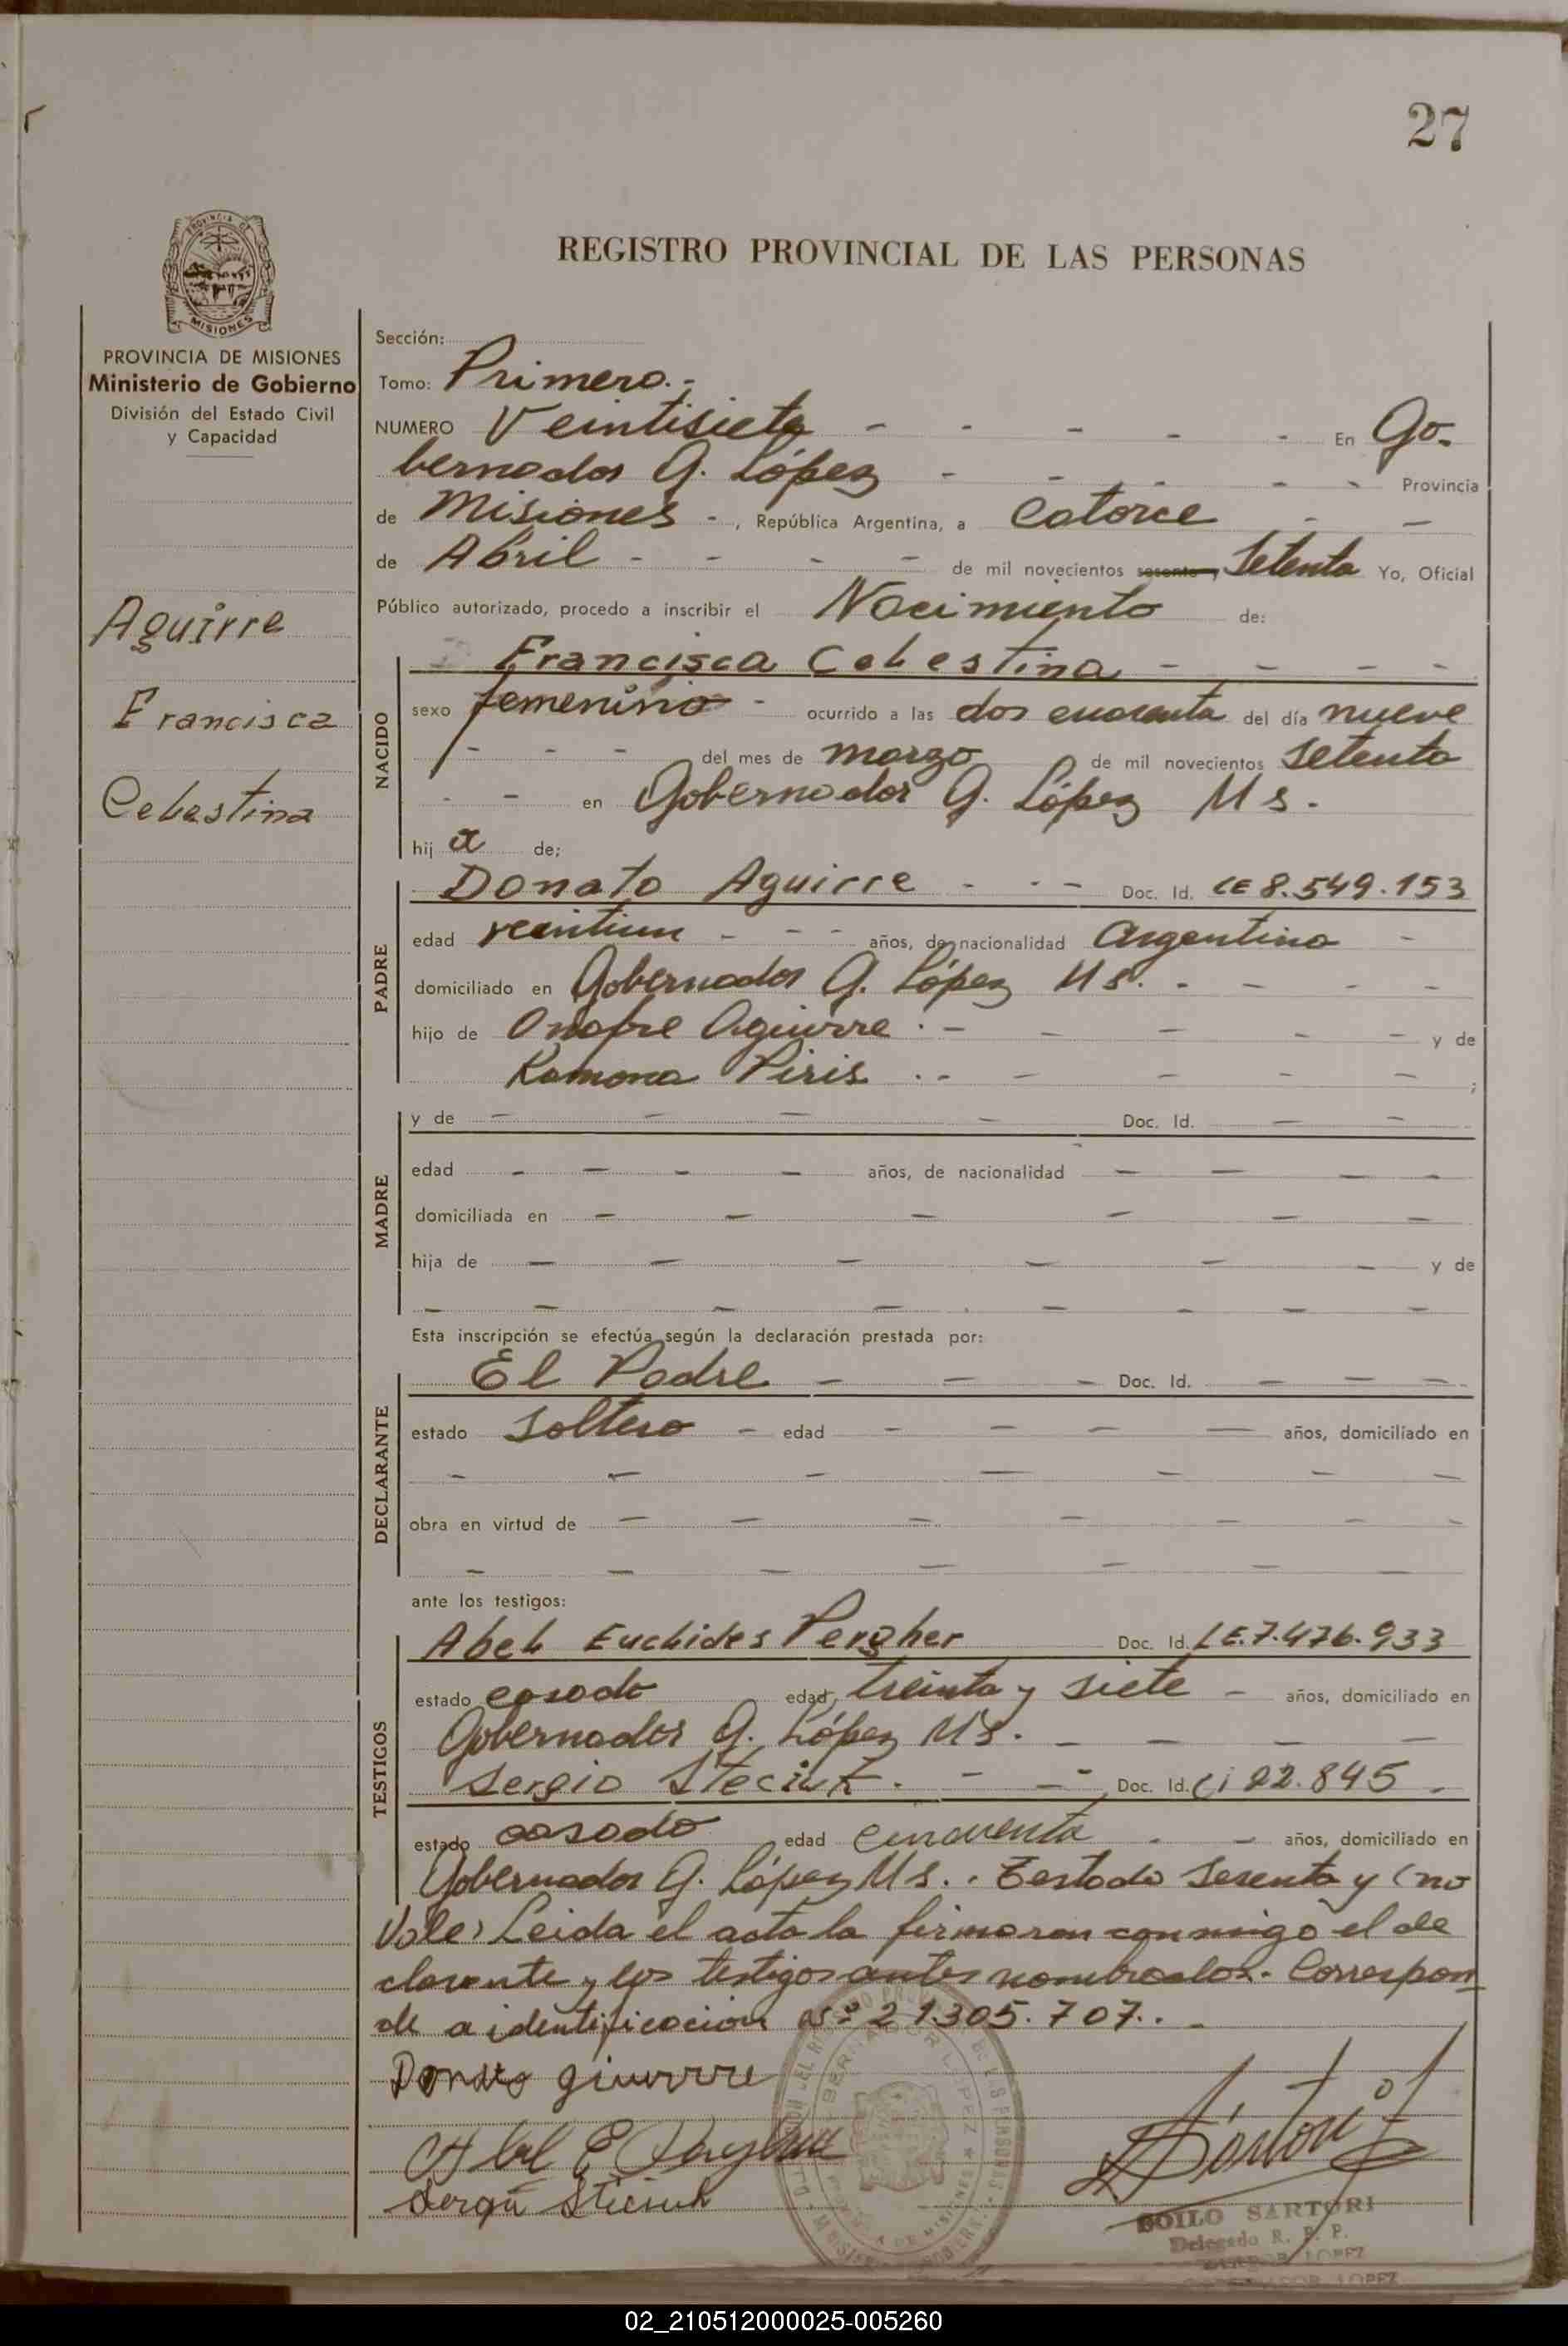 27
REGISTRO PROVINCIAL DE LAS PERSONAS
PROVINCIA DE MISIONES
Ministerio de Gobierno
División del Estado Civil
y Capacidad
Aguirre
Francisca
Celestina
Sección:
Tomo: Primero.-
NUMERO Veintisiete - - - - - En Go-
bernador G. López - - - - - Provincia
de Misiones - , República Argentina, a Catorce - -
de Abril - - - - de mil novecientos sesenta y Setenta Yo, Oficial
Público autorizado, procedo a inscribir el Nacimiento de:
NACIDO
Francisca Celestina - - - -
sexo femenino - ocurrido a las dos cuarenta del día nueve
- - - del mes de marzo de mil novecientos setenta
- - en Gobernador G. López Ms.
hij a de;
PADRE
Donato Aguirre - - - Doc. Id. LE 8.549.153
edad veintiun - - - años, de nacionalidad Argentino -
domiciliado en Gobernador G. López Ms. - - - -
hijo de Onofre Aguirre . - - - - - y de
Ramona Piris . - - - - - ;
MADRE
y de - - - - Doc. Id. - -
edad - - - - años, de nacionalidad - - - -
domiciliada en - - - - - -
hija de - - - - - - y de
- - - - - - - -
Esta inscripción se efectúa según la declaración prestada por:
DECLARANTE
El Padre - - - Doc. Id. - - -
estado Soltero - edad - - - - años, domiciliado en
- - - - - - -
obra en virtud de - - - - - - -
- - - - - -
ante los testigos:
TESTIGOS
Abel Euclides Pergher Doc. Id. LE.7.476.933
estado casado edad treinta y siete - años, domiciliado en
Gobernador G. López Ms. - - - -
Sergio Steciuk. - - Doc. Id. Ci 22.845 .
estado casado edad cincuenta . - años, domiciliado en
Gobernador G. López Ms. . Testado sesenta y (no
Vale) Leida el acta la firmaron conmigo el de
clarante y los testigos antes nombrados.- Correspon-
de a identificacion Nº 21.305.707.. -
Donato giuurrre
Abel E Pergher
Sergio Steciuk
Sartori
ZOILO SARTORI
Delegado R. P. P.
LOPEZ
02_210512000025-005260